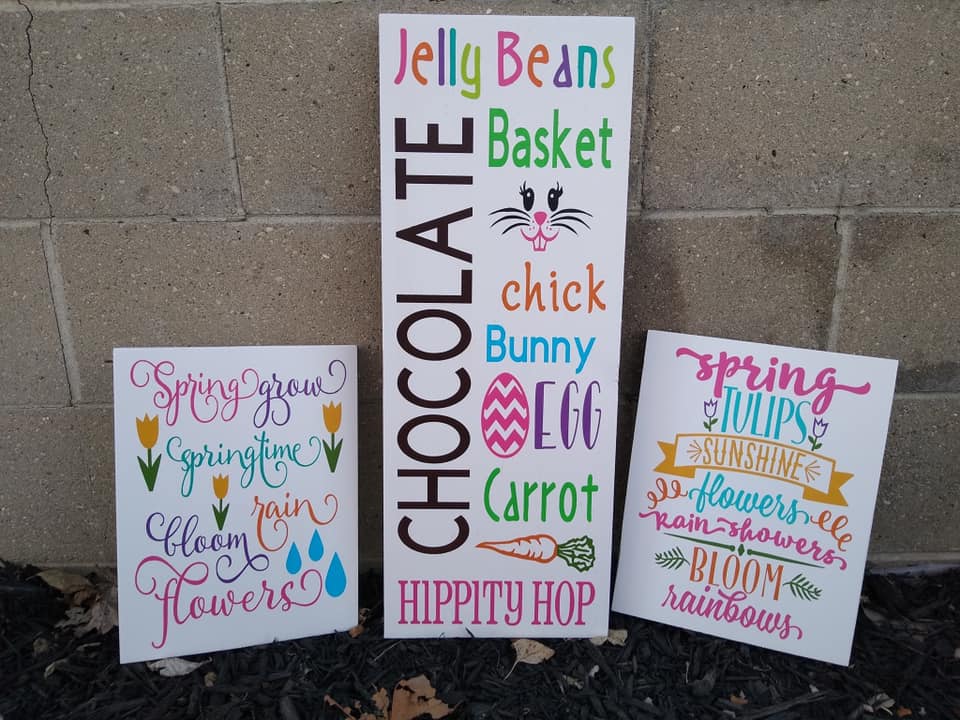 Spring grow
Springtime
rain
bloom
flowers
Jelly Beans
CHOCOLATE
Basket
chick
Bunny
EGG
Carrot
HIPPITY HOP
spring
TULIPS
SUNSHINE
flowers
Rain-showers
BLOOM
rainbows